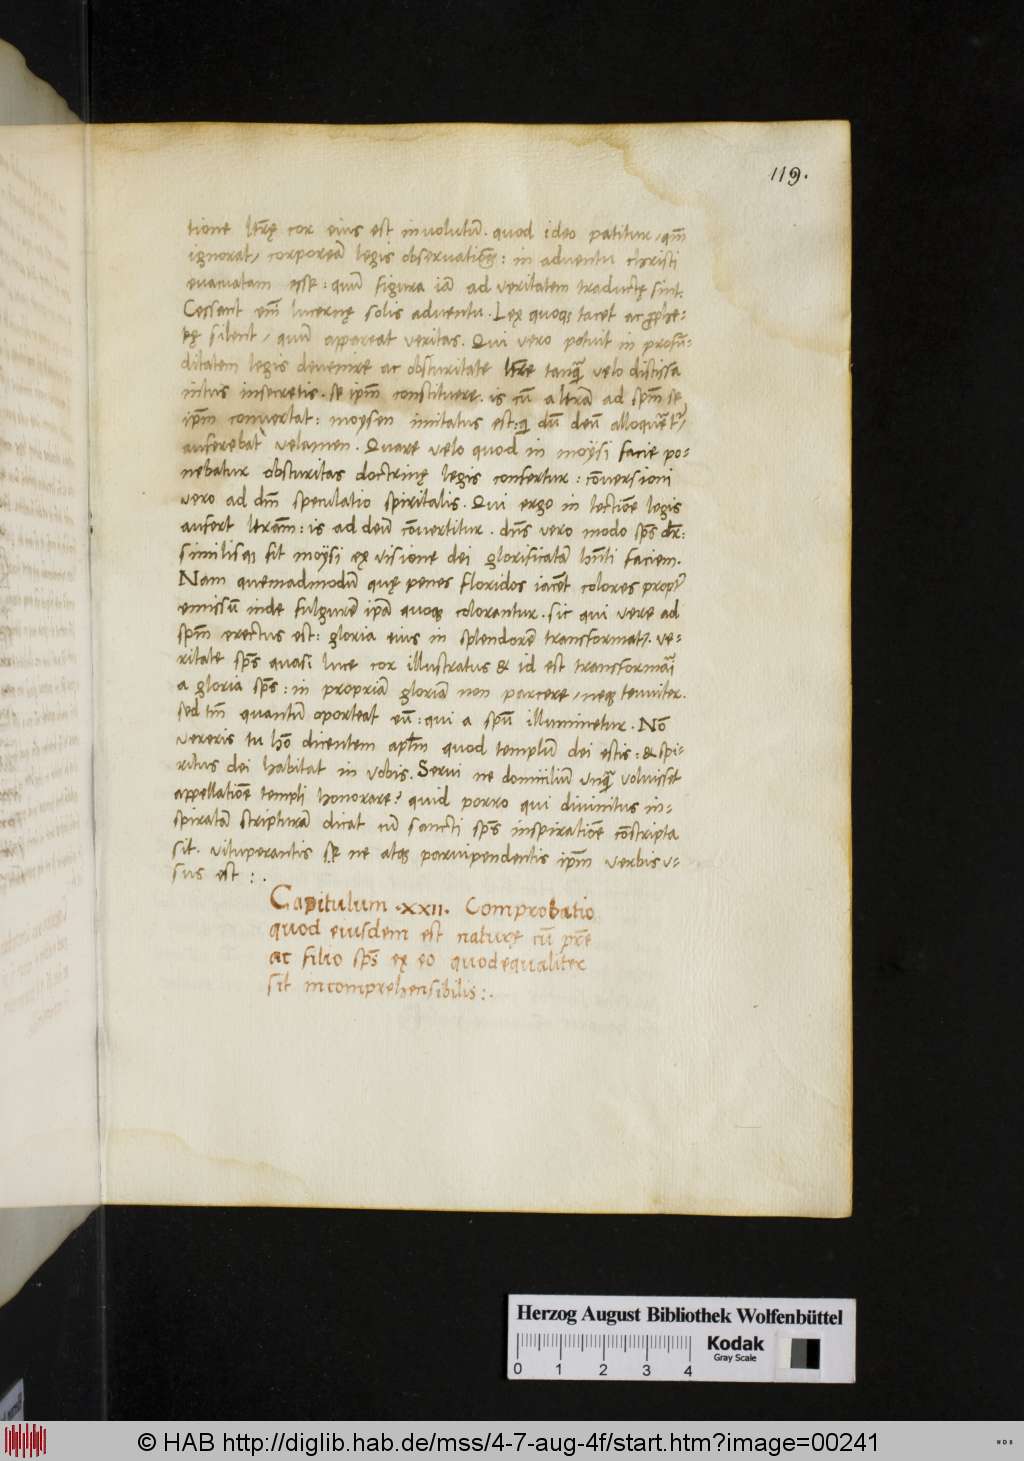 119.
tione lr̃ę cor eius est inuolutũ. quod ideo patitur, qm̃
ignorat, corporeã legis obseruationẽ: in aduentu christi
euacuatam esse: quũ figura iã ad veritatem traductę sint.
Cessant em̃ lucernę solis aduentu. Lex quoq; tacet ac prophe-
tę silent, quũ appareat veritas. Qui vero potuit in profũ-
ditatem legis deuenire ac obscuritate lr̃e tanq̃ velo discissa
intus insecretis. se ipm̃ constituere. is cũ a lr̃a ad spm̃ se
ipm̃ conuertat: moysen imitatus est: qi dũ deũ alloqueret̃,
auferebat velamen. Quare velo quod in moysi facie po-
nebatur obscuritas doctrinę legis confertur: cõuersioni
vero ad dm̃ speculatio spiritalis. Qui ergo in lectiõe legis
aufert lr̃am: is ad deũ cõuertitur. dñs vero modo sp̃s dr̃:
similisq; fit moysi ex visione dei glorificatã hñti faciem.
Nam quemadmodũ quę penes floridos iacẽt colores propt̃
emissũ inde fulgurẽ ip̃a quoq; colorantur. sic qui vere ad
spm̃ erectus est: gloria eius in splendorẽ transformat̃. ve-
ritate sp̃s quasi luce cor illustratus & id est transformari
a gloria sp̃s: in propriã gloriã non parcere, neq; tenuiter.
sed tm̃ quantũ oporteat eũ: qui a spũ illuminetur. Nõ
vereris tu hõ dicentem apl̃m quod templũ dei estis: & spi-
ritus dei habitat in vobis. Serui ne domicilium unq̃ voluisset
appellatiõe templi honorare? quid porro qui diuinitus in-
spiratã scripturã dicat cũ sancti sp̃s inspiratiõe cõscripta
sit. vituperantis se ne atq; paruipendentis ipm̃ verbis v-
sus est :.
Capitulum .XXII. Comprobatio
quod eiusdem est naturę cũ pr̃e
ac filio sp̃s ex eo quod equaliter
sit incomprehensibilis:.
Herzog August Bibliothek Wolfenbüttel
Kodak
Gray Scale
0 1 2 3 4
© HAB http://diglib.hab.de/mss/4-7-aug-4f/start.htm?image=00241